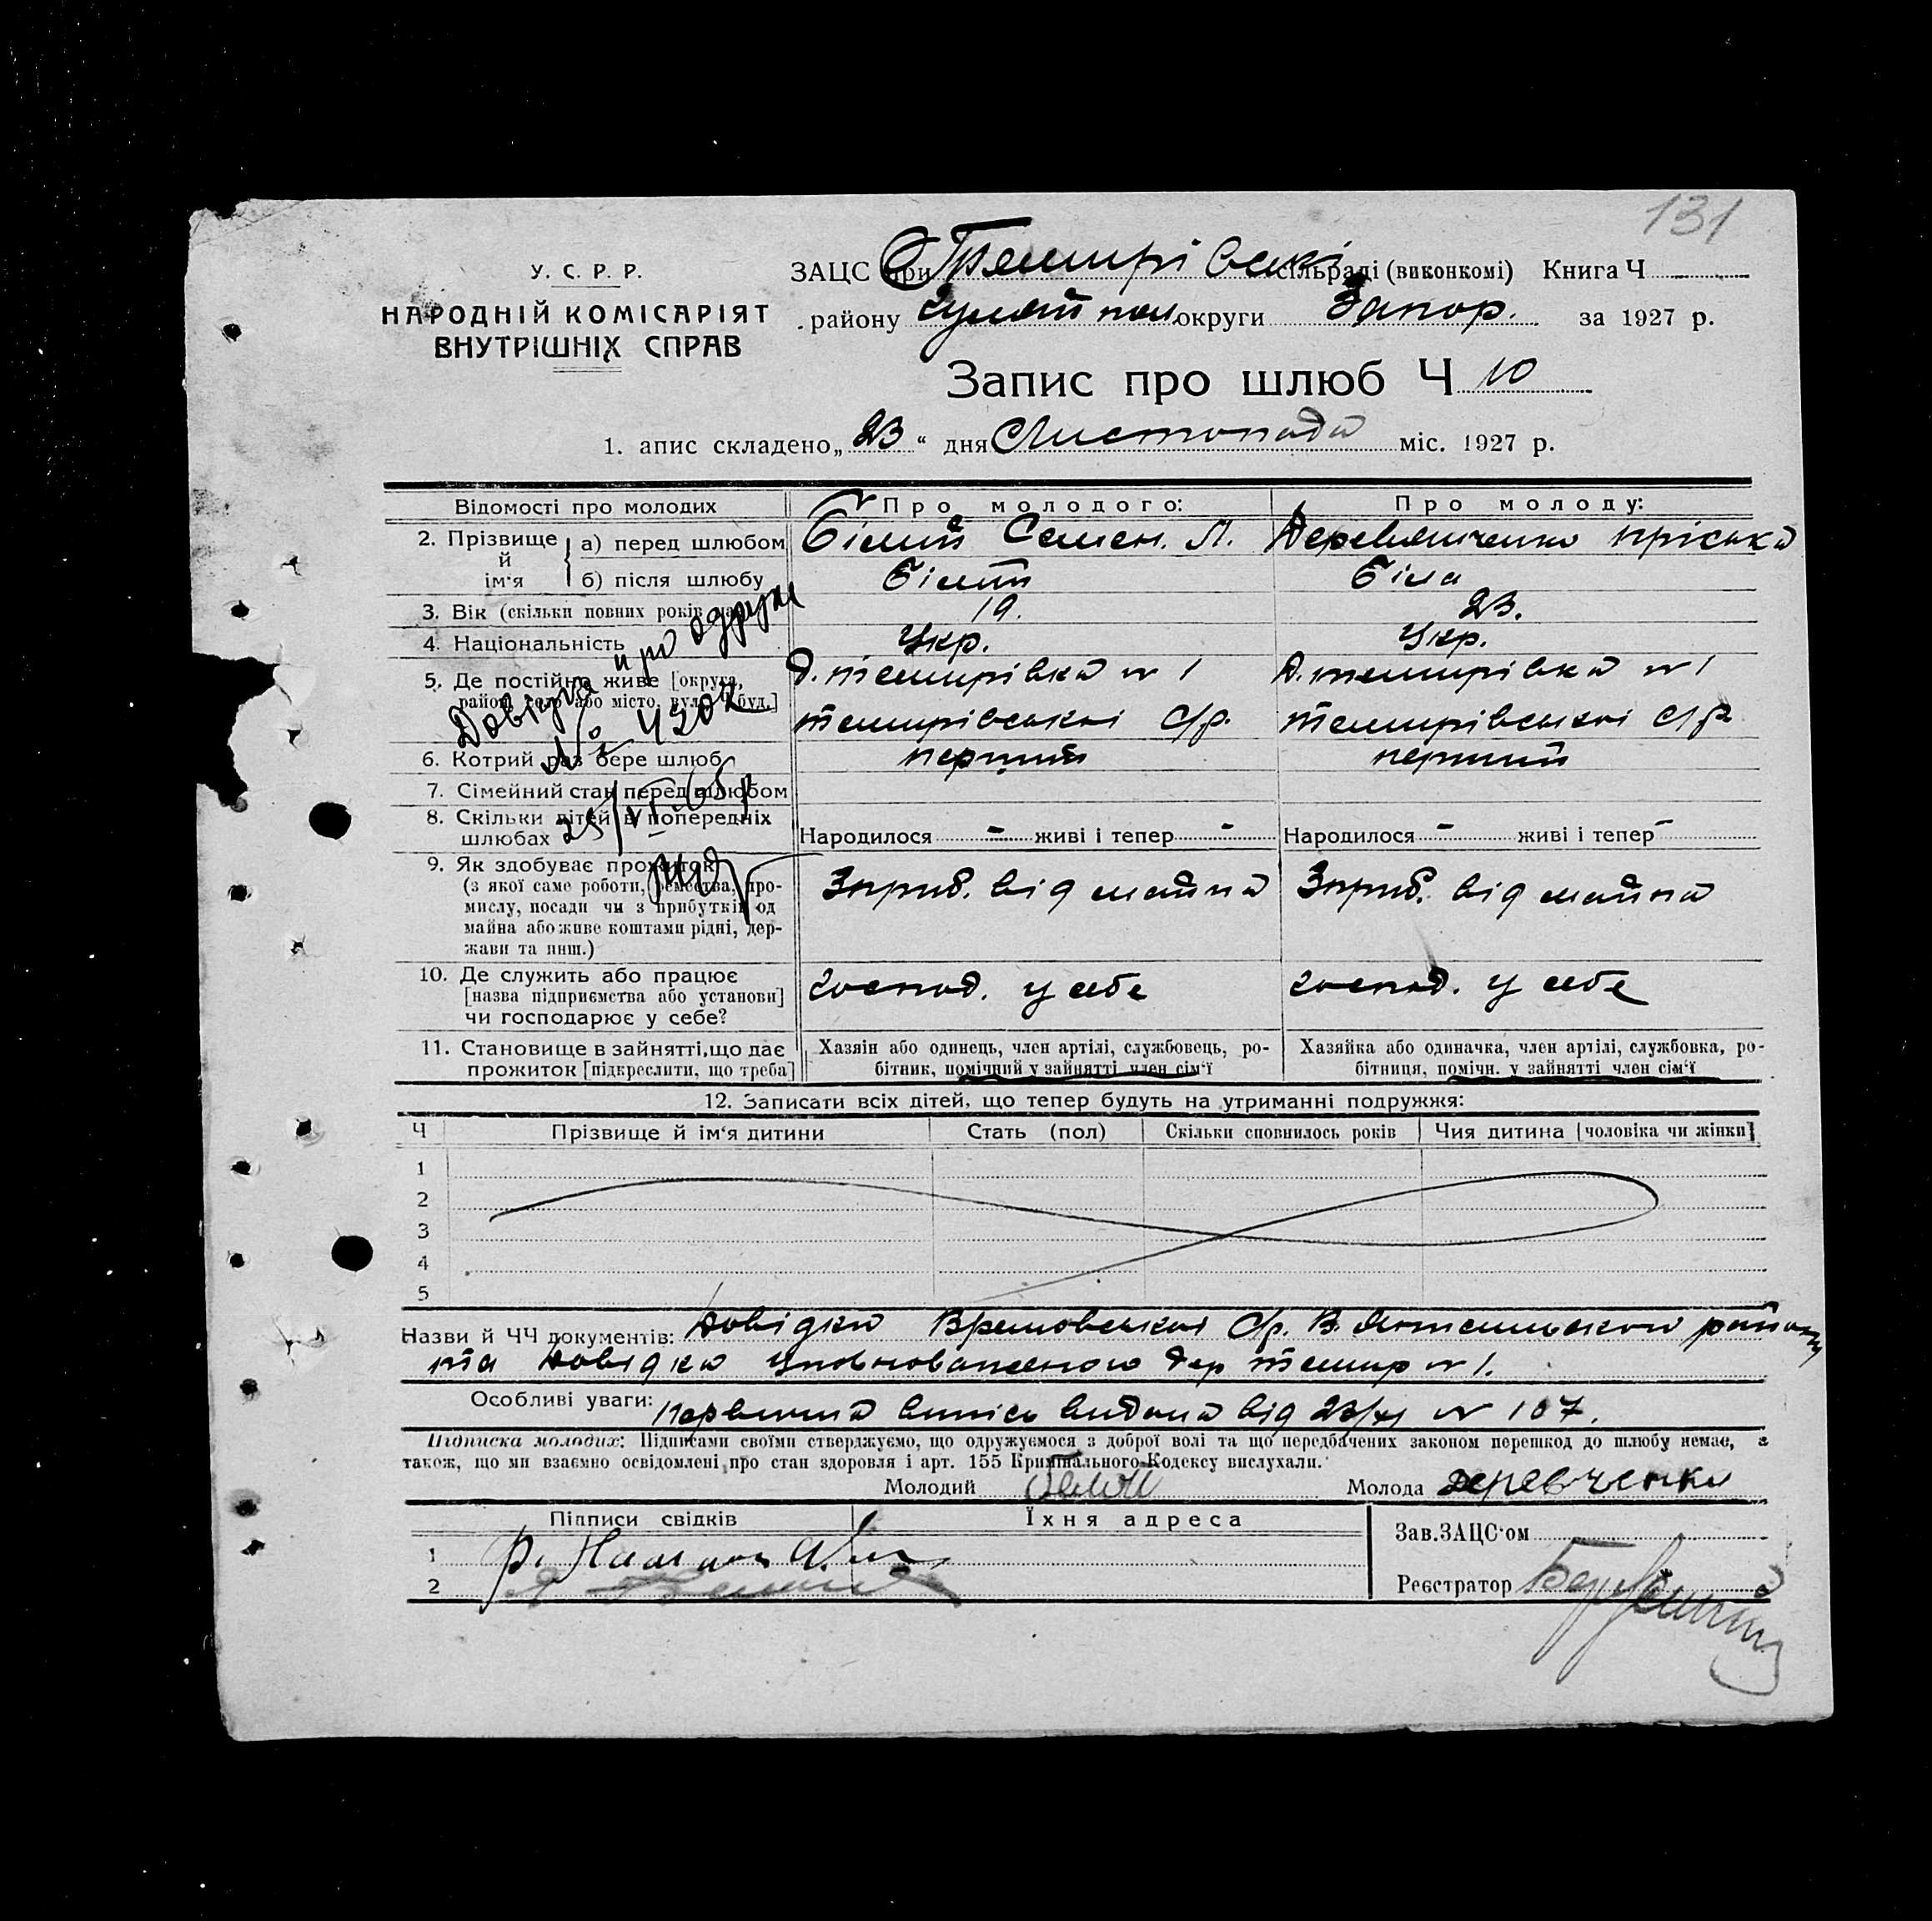 131
У. С. Р. Р.
НАРОДНІЙ КОМІСАРІЯТ
ВНУТРІШНІХ СПРАВ
ЗАЦС при Темирівскі сільраді (виконкомі) Книга Ч
району Гуляйпол округи Запор. за 1927 р.
Запис про шлюб Ч 10
1. апис складено „23“ дня Листопада міс. 1927 р.
Відомості про молодих Про молодого: Про молоду:
2. Прізвище й ім'я а) перед шлюбом Білий Семен. Л. Деревянченко Пріська
б) після шлюбу Білий Біла
3. Вік (скільки повних років 19. 23.
4. Національність Укр. Укр.
5. Де постійно живе [округа, д. Темирівка № 1 д. Темирівка № 1
район, село або місто, вул. буд.] Темирівської с/р. Темирівської с/р.
6. Котрий раз бере шлюб перший перший
7. Сімейний стан перед шлюбом
8. Скільки дітей в попередніх
шлюбах Народилося - живі і тепер - Народилося - живі і тепер -
9. Як здобуває прожиток
(з якої саме роботи, ремества, про-
мислу, посади чи з прибутків од
майна або живе коштами рідні, дер-
жави та инш.)
Зприб. від майна Зприб. від майна
10. Де служить або працює
[назва підприємства або установи]
чи господарює у себе?
господ. у себе господ. у себе
11. Становище в зайнятті, що дає
прожиток [підкреслити, що треба]
Хазяін або одинець, член артілі, службовець, ро-
бітник, помічний у зайнятті член сім'ї
Хазяйка або одиначка, член артілі, службовка, ро-
бітниця, помічн. у зайнятті член сім'ї
Довідка про одруж
№ 4302
25/VI-65р
12. Записати всіх дітей, що тепер будуть на утриманні подружжя:
Ч Прізвище й ім'я дитини Стать (пол) Скільки сповнилось років Чия дитина [чоловіка чи жінки]
1
2
3
4
5
Назви й ЧЧ документів: Довідка Времовської с/р. В. Янисольского району
та Довідка уповноваженого дер Темир № 1.
Особливі уваги: Первична випісь видана від 23/XI № 107.
Підписка молодих: Підписами своїми стверджуємо, що одружуємося з доброї волі та що передбачених законом перешкод до шлюбу немає, а
також, що ми взаємно освідомлені про стан здоровля і арт. 155 Кримінального Кодексу вислухали.
Молодий Белий Молода Деревченко
Підписи свідків Їхня адреса
1
2
Зав. ЗАЦС'ом
Реєстратор